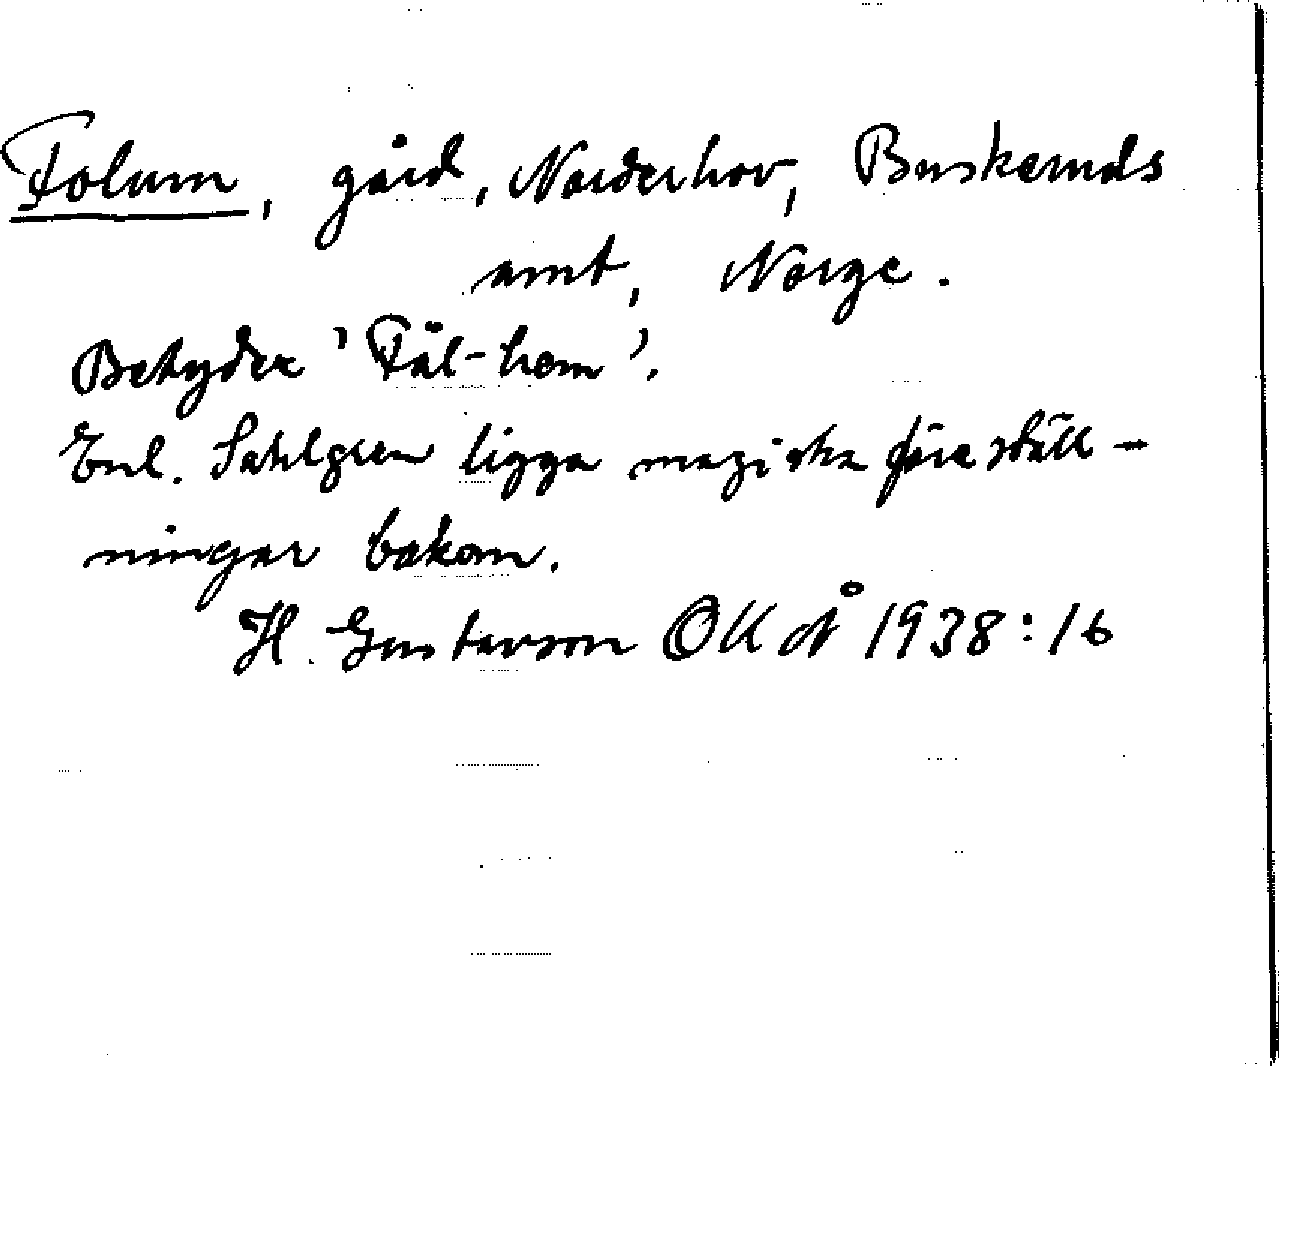 Folum, gård, Norderhov, Buskeruds
amt, Norge.
Betyder 'Fål-hem'.
Enl. Sahlgren ligga magiska föreställ-
ningar bakom.
H. Gustavson OUÅ 1938:16